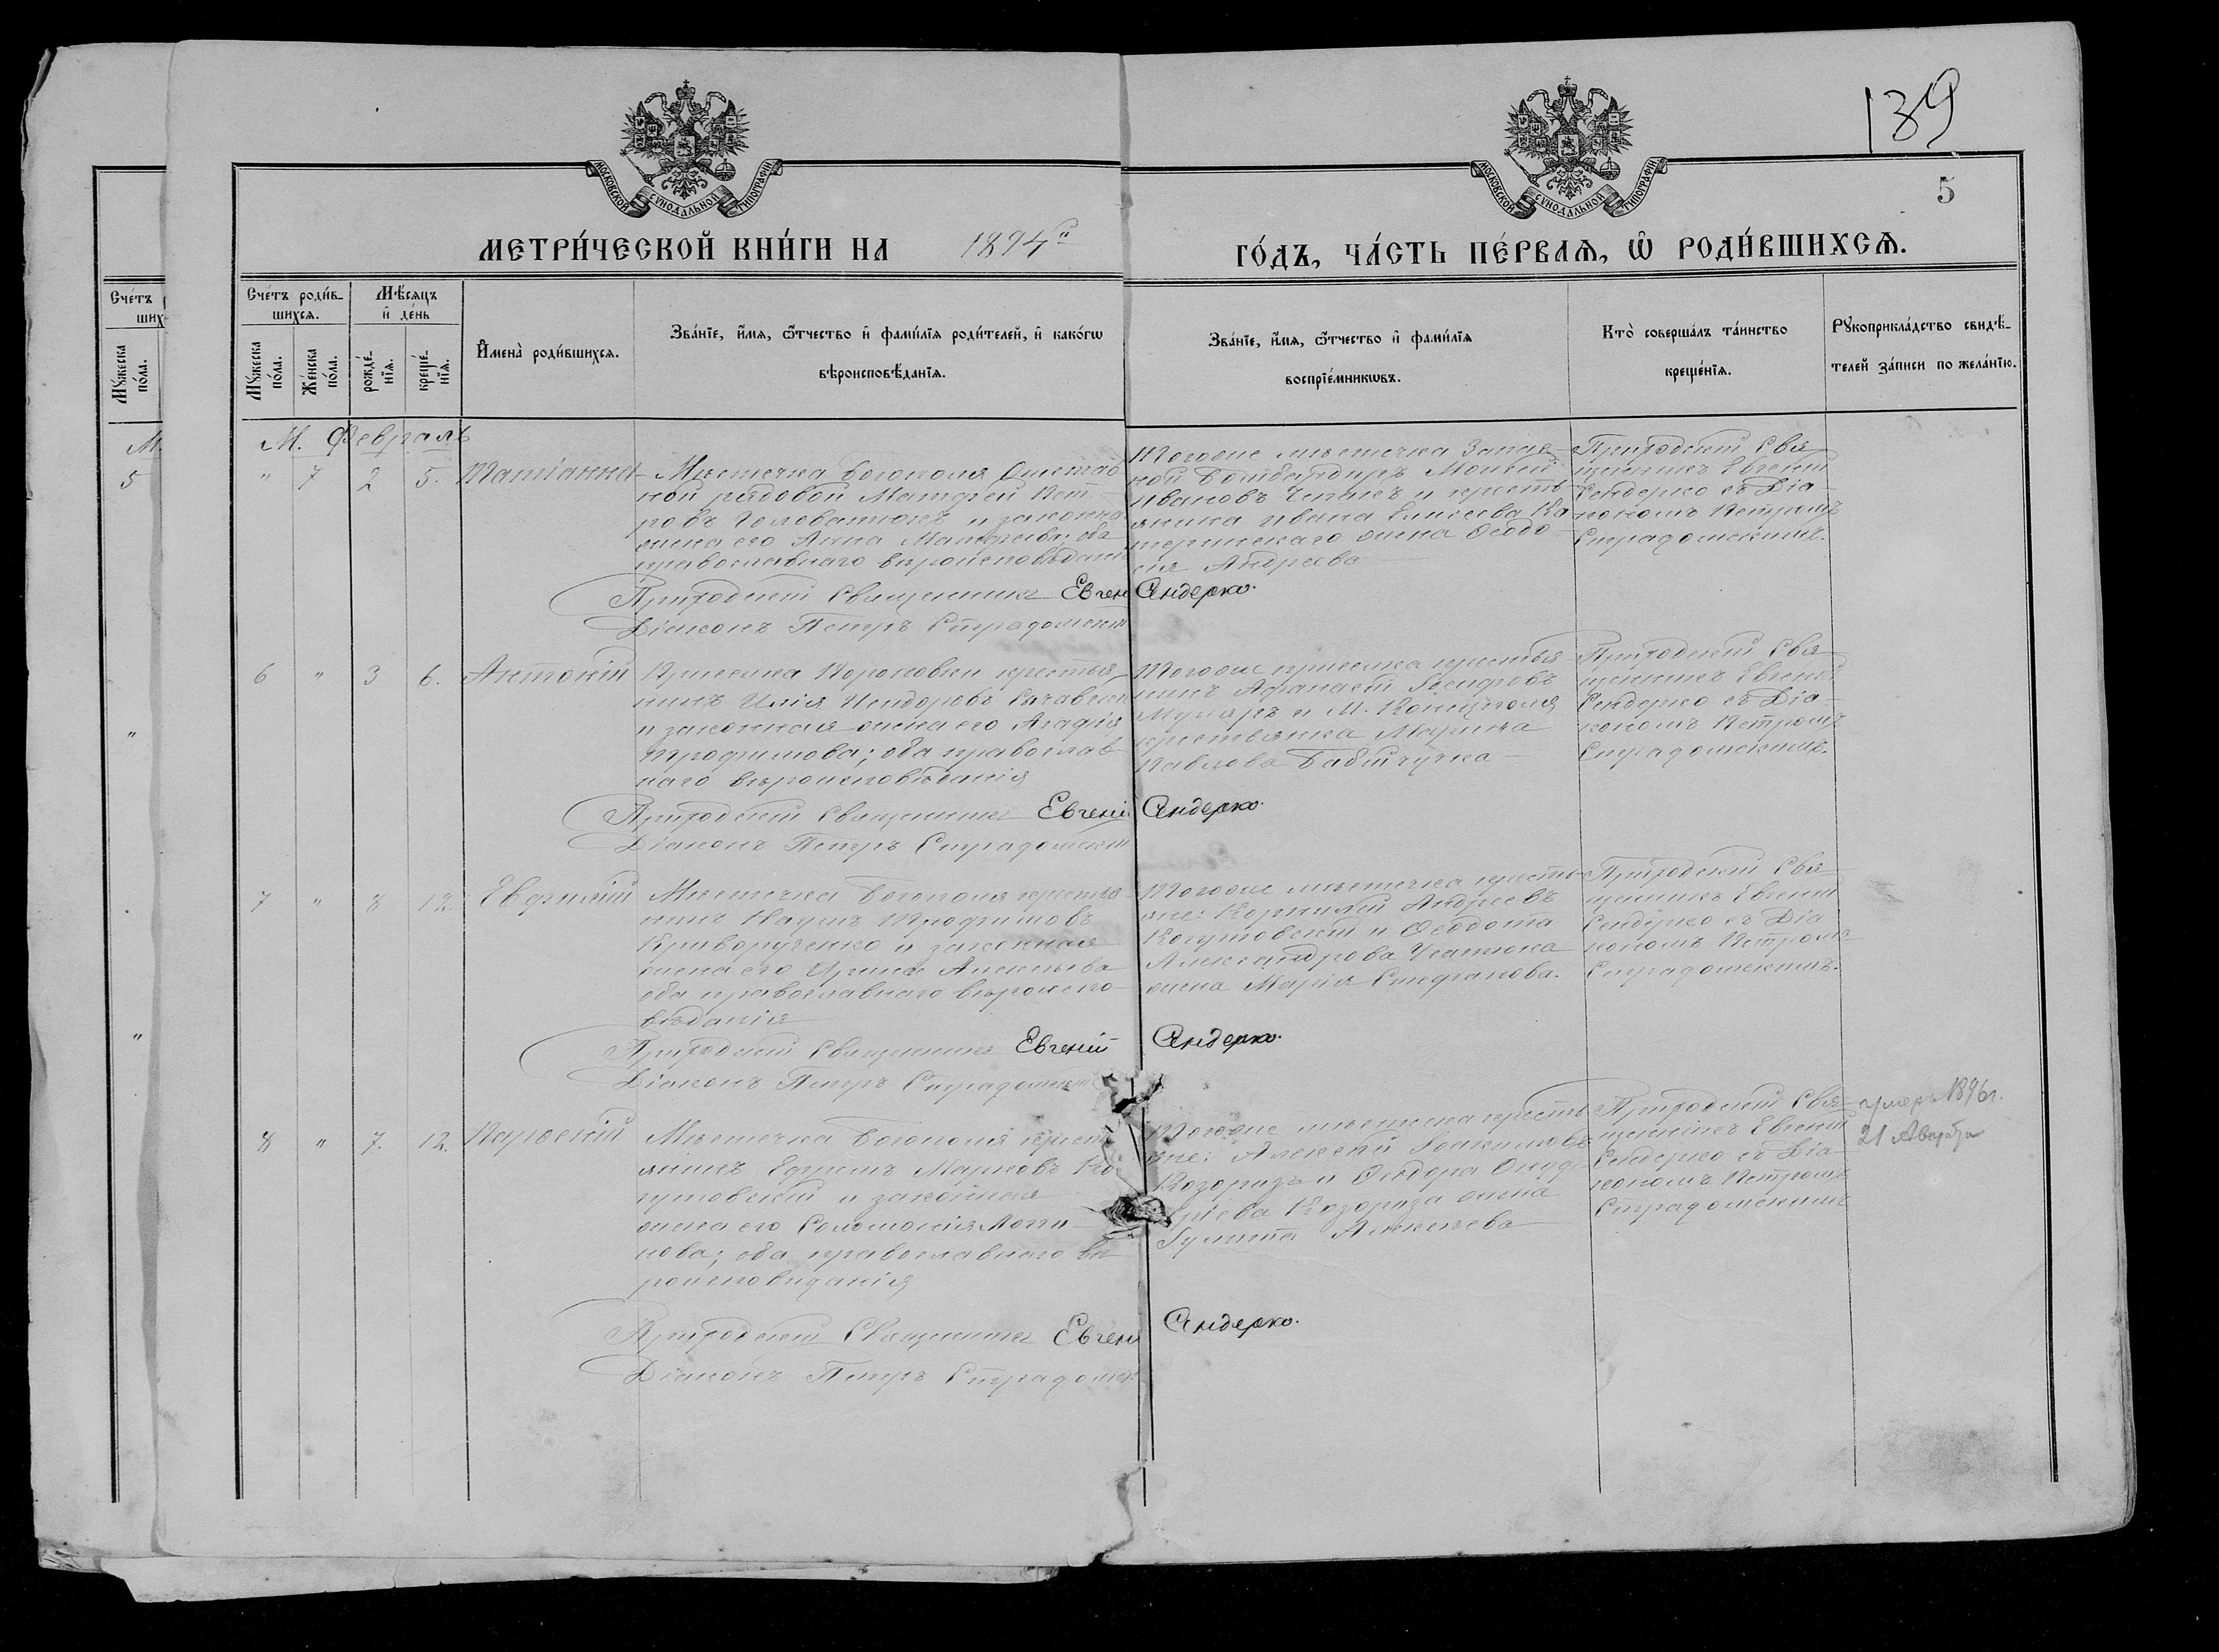 139
5
МОСКОВСКОЙ СѴНОДАЛЬНОЙ ТИПОГРАФІИ
МОСКОВСКОЙ СѴНОДАЛЬНОЙ ТИПОГРАФІИ
МЕТРИ́ЧЕСКОЙ КНИ́ГИ НА 1894й ГО́ДЪ, ЧА́СТЬ ПЕ́РВАѦ, Ѿ РОДИ́ВШИХСѦ.
Счетъ
ших
Мꙋжеска по́ла.
Сче́тъ роди́в-
шихсѧ.
Мꙋжеска по́ла.
Же́нска по́ла.
Мѣ́сѧцъ
и҆ де́нь
рожде́-
нїѧ.
креще́-
нїѧ.
И҆мена̀ роди́вшихсѧ.
Зва́нїе, и҆́мѧ, ѻ҆́тчество и҆ фами́лїѧ роди́телей, и҆ како́гѡ
вѣроисповѣ́данїѧ.
Зва́нїе, и҆́мѧ, ѻ҆́тчество и҆ фами́лїѧ
воспрїе́мникѡвъ.
Кто̀ соверша́лъ та́инство
креще́нїѧ.
Рꙋкоприкла́дство свидѣ́-
телей за́писи по жела́нїю.
М.
5
"
"
М. Февраль
" 7 2 5. Татіанна
Мѣстечка Богополя Отстав
ной рядовой Матфей Пет-
ровъ Головатюкъ и законная
жена его Анна Матфеева; оба
православнаго вѣроисповѣдані
Тогоже мѣстечка Запас-
ной Бомбардиръ Моисей
Ивановъ и кресть-
янина Ивана Елисеева Ка
жена Ѳеодо-
сія Андреева
Приходскій Свя-
щенникъ Евгеній
Сендерко съ Діа-
кономъ Петромъ
Страдомскимъ.
Приходскій Священникъ Евген Сендерко.
Діаконъ Петръ Страдомскій
6 " 3 6. Антоній
Приселка Короновки крестья-
нинъ Илія
и законная жена его Агафія
Трофимова; оба православ
наго вѣроисповѣданія
Тогоже приселка крестья-
нинъ Афанасій Іосифовъ
Муляръ и М. Конецполя
крестьянка Марина
Павлова
Приходскій Свя-
щенникъ Евгеній
Сендерко съ Діа-
кономъ Петромъ
Страдомскимъ.
Приходскій Священникъ Евгеній Сендерко.
Діаконъ Петръ Страдомскій
7 " 8 12. Евфимій
Мѣстечка Богополя крестья-
нинъ Наумъ Трофимовъ
Криворученко и законная
жена его Ирина Алексѣева
оба православнаго вѣроиспо-
вѣданія
Тогоже мѣстечка кресть-
яне: Корнилій Андреевъ
Когутовскій и Ѳеодота
Александрова Усатюка
жена Марія Стефанова.
Приходскій Свя-
щенникъ Евгеній
Сендерко съ Діа-
кономъ Петромъ
Страдомскимъ.
Приходскій Священникъ Евгеній Сендерко.
Діаконъ Петръ Страдомскій
8 " 7. 12. Парѳеній
Мѣстечка Богополя крест
янинъ Ефремъ Марковъ Ко
гутовскій и законная
жена его Соломонія Логи-
нова; оба православнаго вѣ
роисповиданія
Тогоже мѣстечка кресть
яне: Алексей Іоакимовъ
Козоризъ и Ѳедора Онуф
ріева Козориза жена
Іулитта Алексѣева
Приходскій Свя-
щенникъ Евгеній
Сендерко съ Діа-
кономъ Петромъ
Страдомскимъ
умеръ 1896г.
21
Приходскій Священникъ Евгени Сендерко.
Діаконъ Петръ Страдомск